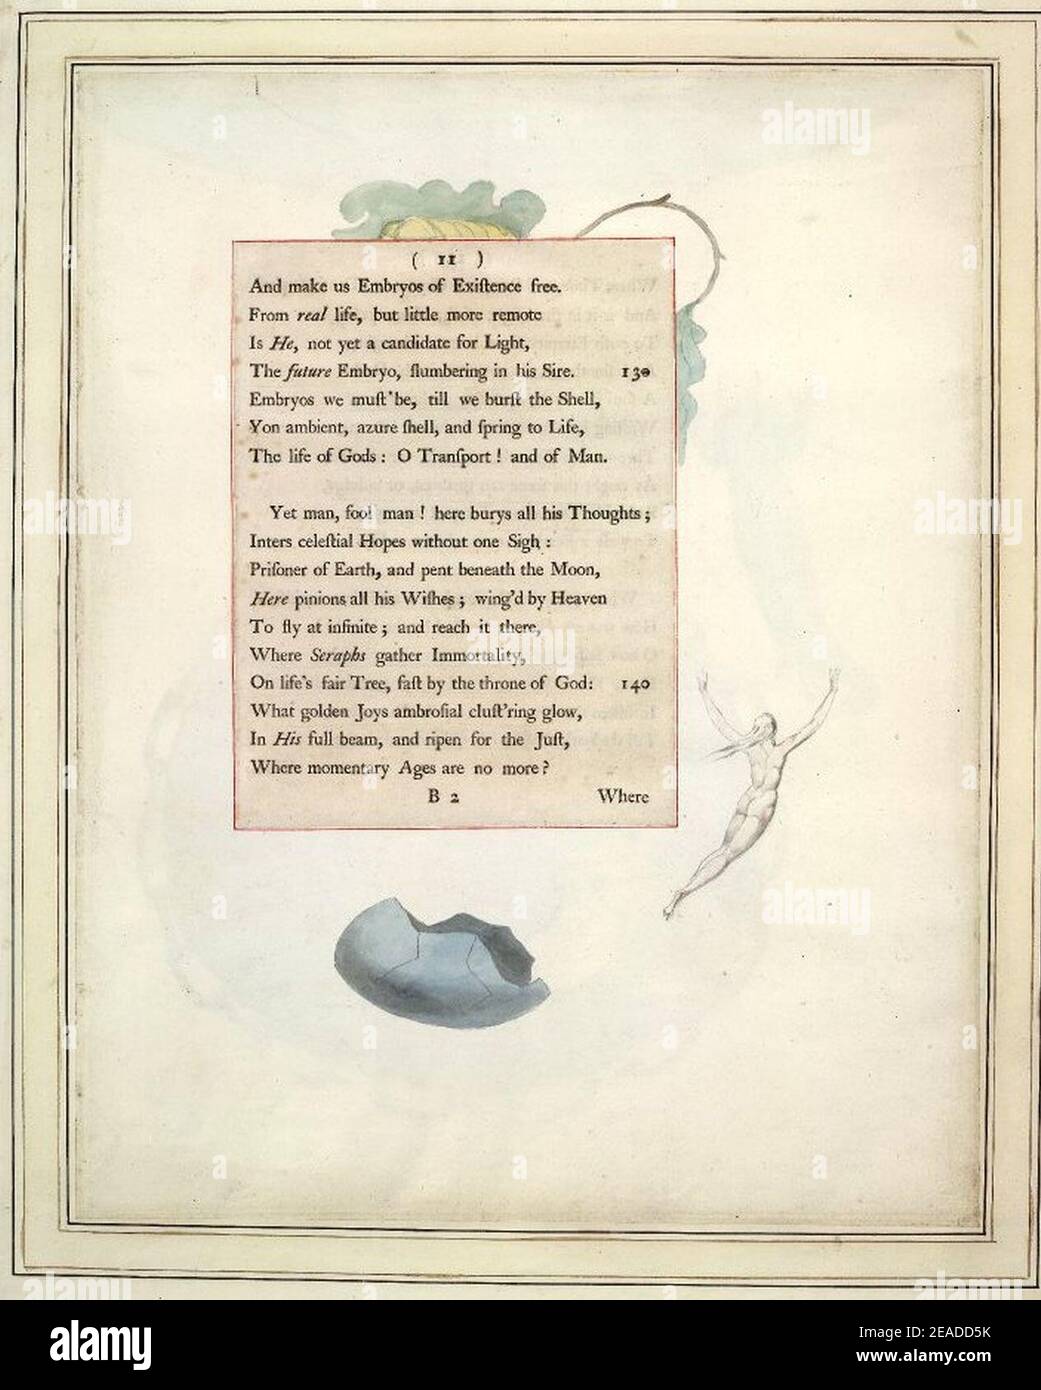 ( 11 )
And make us Embryos of Exiſtence free.
From real life, but little more remote
Is He, not yet a candidate for Light,
The future Embryo, ſlumbering in his Sire. 130
Embryos we muſt be, till we burſt the Shell,
Yon ambient, azure ſhell, and ſpring to Life,
The life of Gods: O Tranſport! and of Man.
Yet man, fool man! here burys all his Thoughts;
Inters celeſtial Hopes without one Sigh:
Priſoner of Earth, and pent beneath the Moon,
Here pinions all his Wiſhes; wing'd by Heaven
To fly at infinite; and reach it there,
Where Seraphs gather Immortality,
On life's fair Tree, faſt by the throne of God: 140
What golden Joys ambroſial cluſt'ring glow,
In His full beam, and ripen for the Juſt,
Where momentary Ages are no more?
B 2 Where
alamy
Image ID: 2EADD5K
www.alamy.com